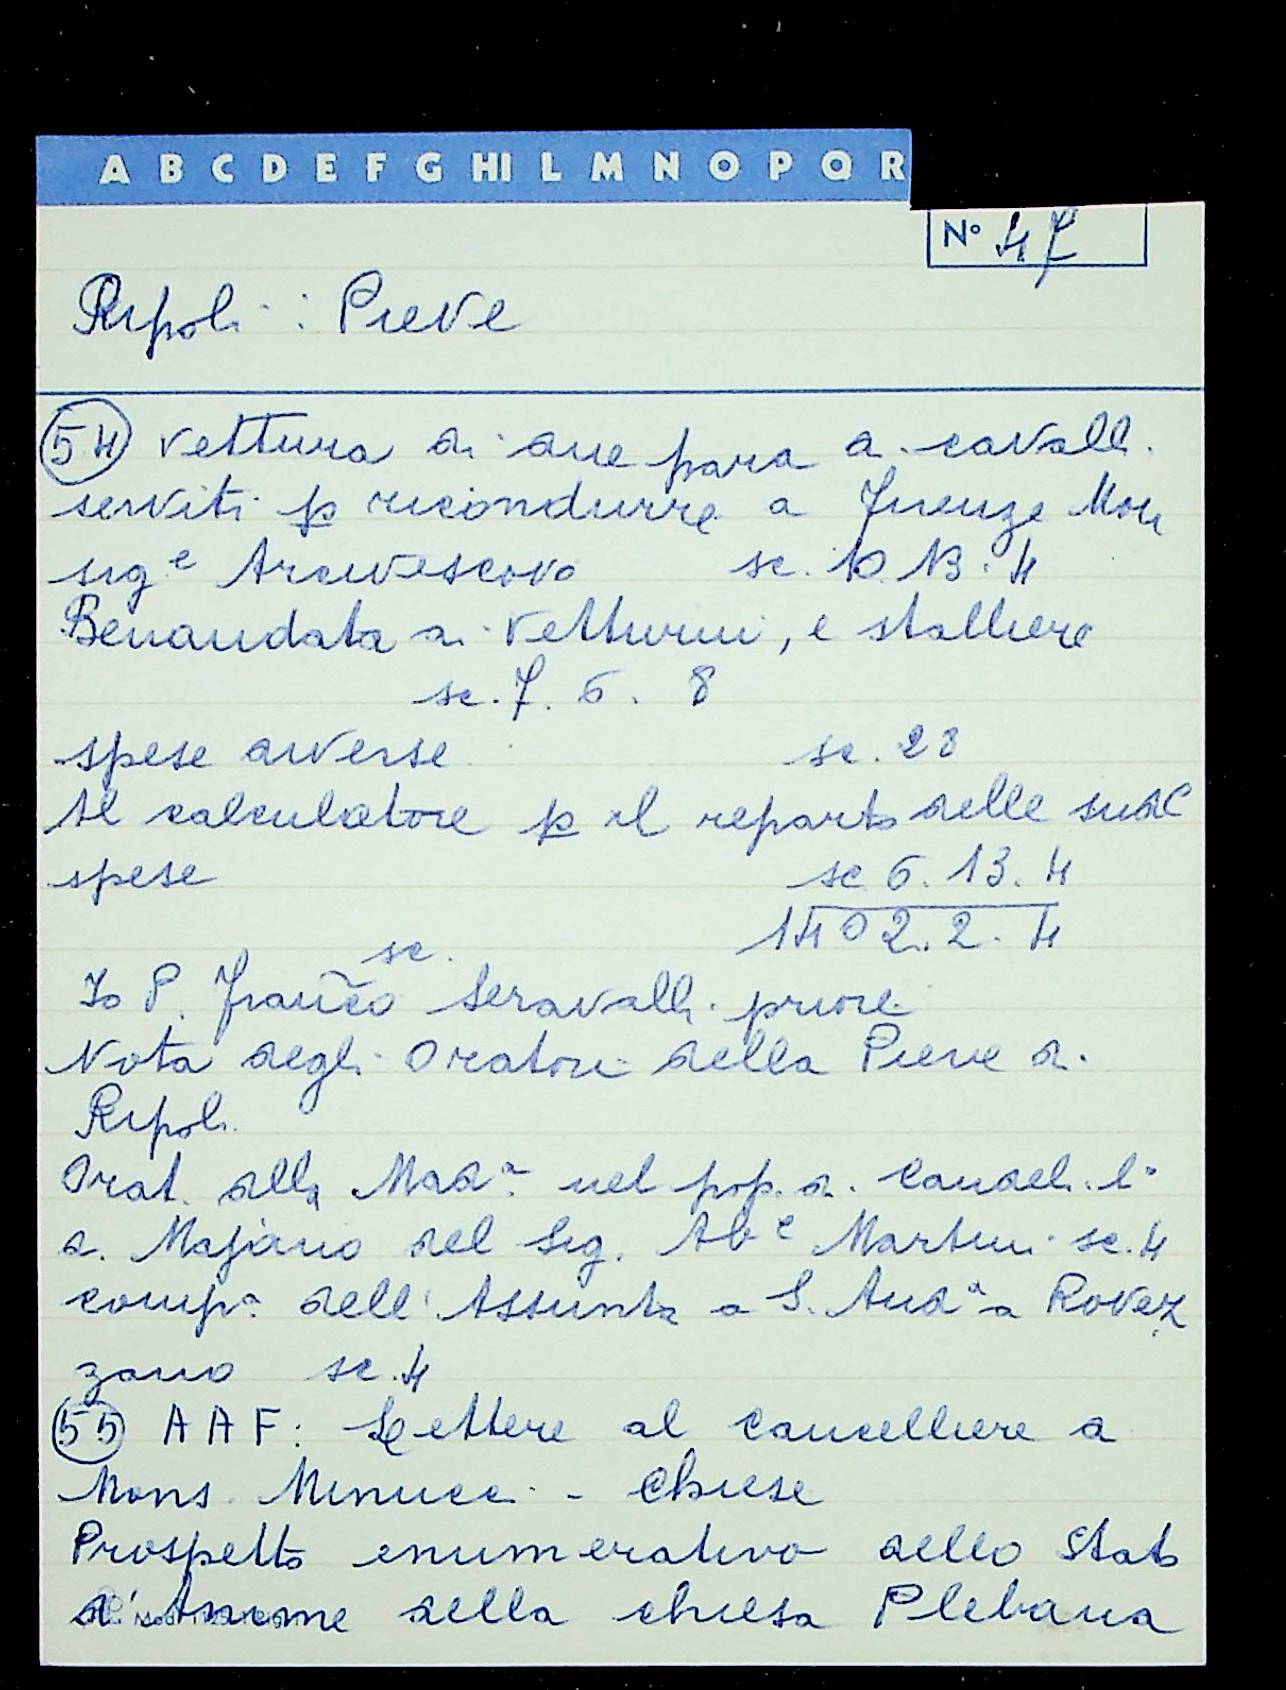 A B C D E F G HI L M N O P Q R
N° 47
Ripoli: Pieve
54 Vettura di due para di cavalli
serviti p ricondurre a Firenze Mon
sigᵉ Arcivescovo sc. 10. 13. 4
Benandata ai Vetturini, e stalliere
sc. 7. 6. 8
spese diverse sc. 28
Al calculatore p il reparto delle sudᵉ
spese sc 6. 13. 4
sc. 1402. 2. 4
Io P. Franco Seravalli priore
Nota degli Oratori della Pieve di
Ripoli
Orat. della Madᵃ nel pop. di Candeli. lᵒ
d. Majano del Sig. Abᵉ Martini sc. 4
compᵃ dell'Assunta a S. Andᵃ a Rovez
zano sc. 4
55 A A F: Lettere al cancelliere di
Mons. Minucci - Chiese
Prospetto enumerativo dello Stato
d'Anime della chiesa Plebana